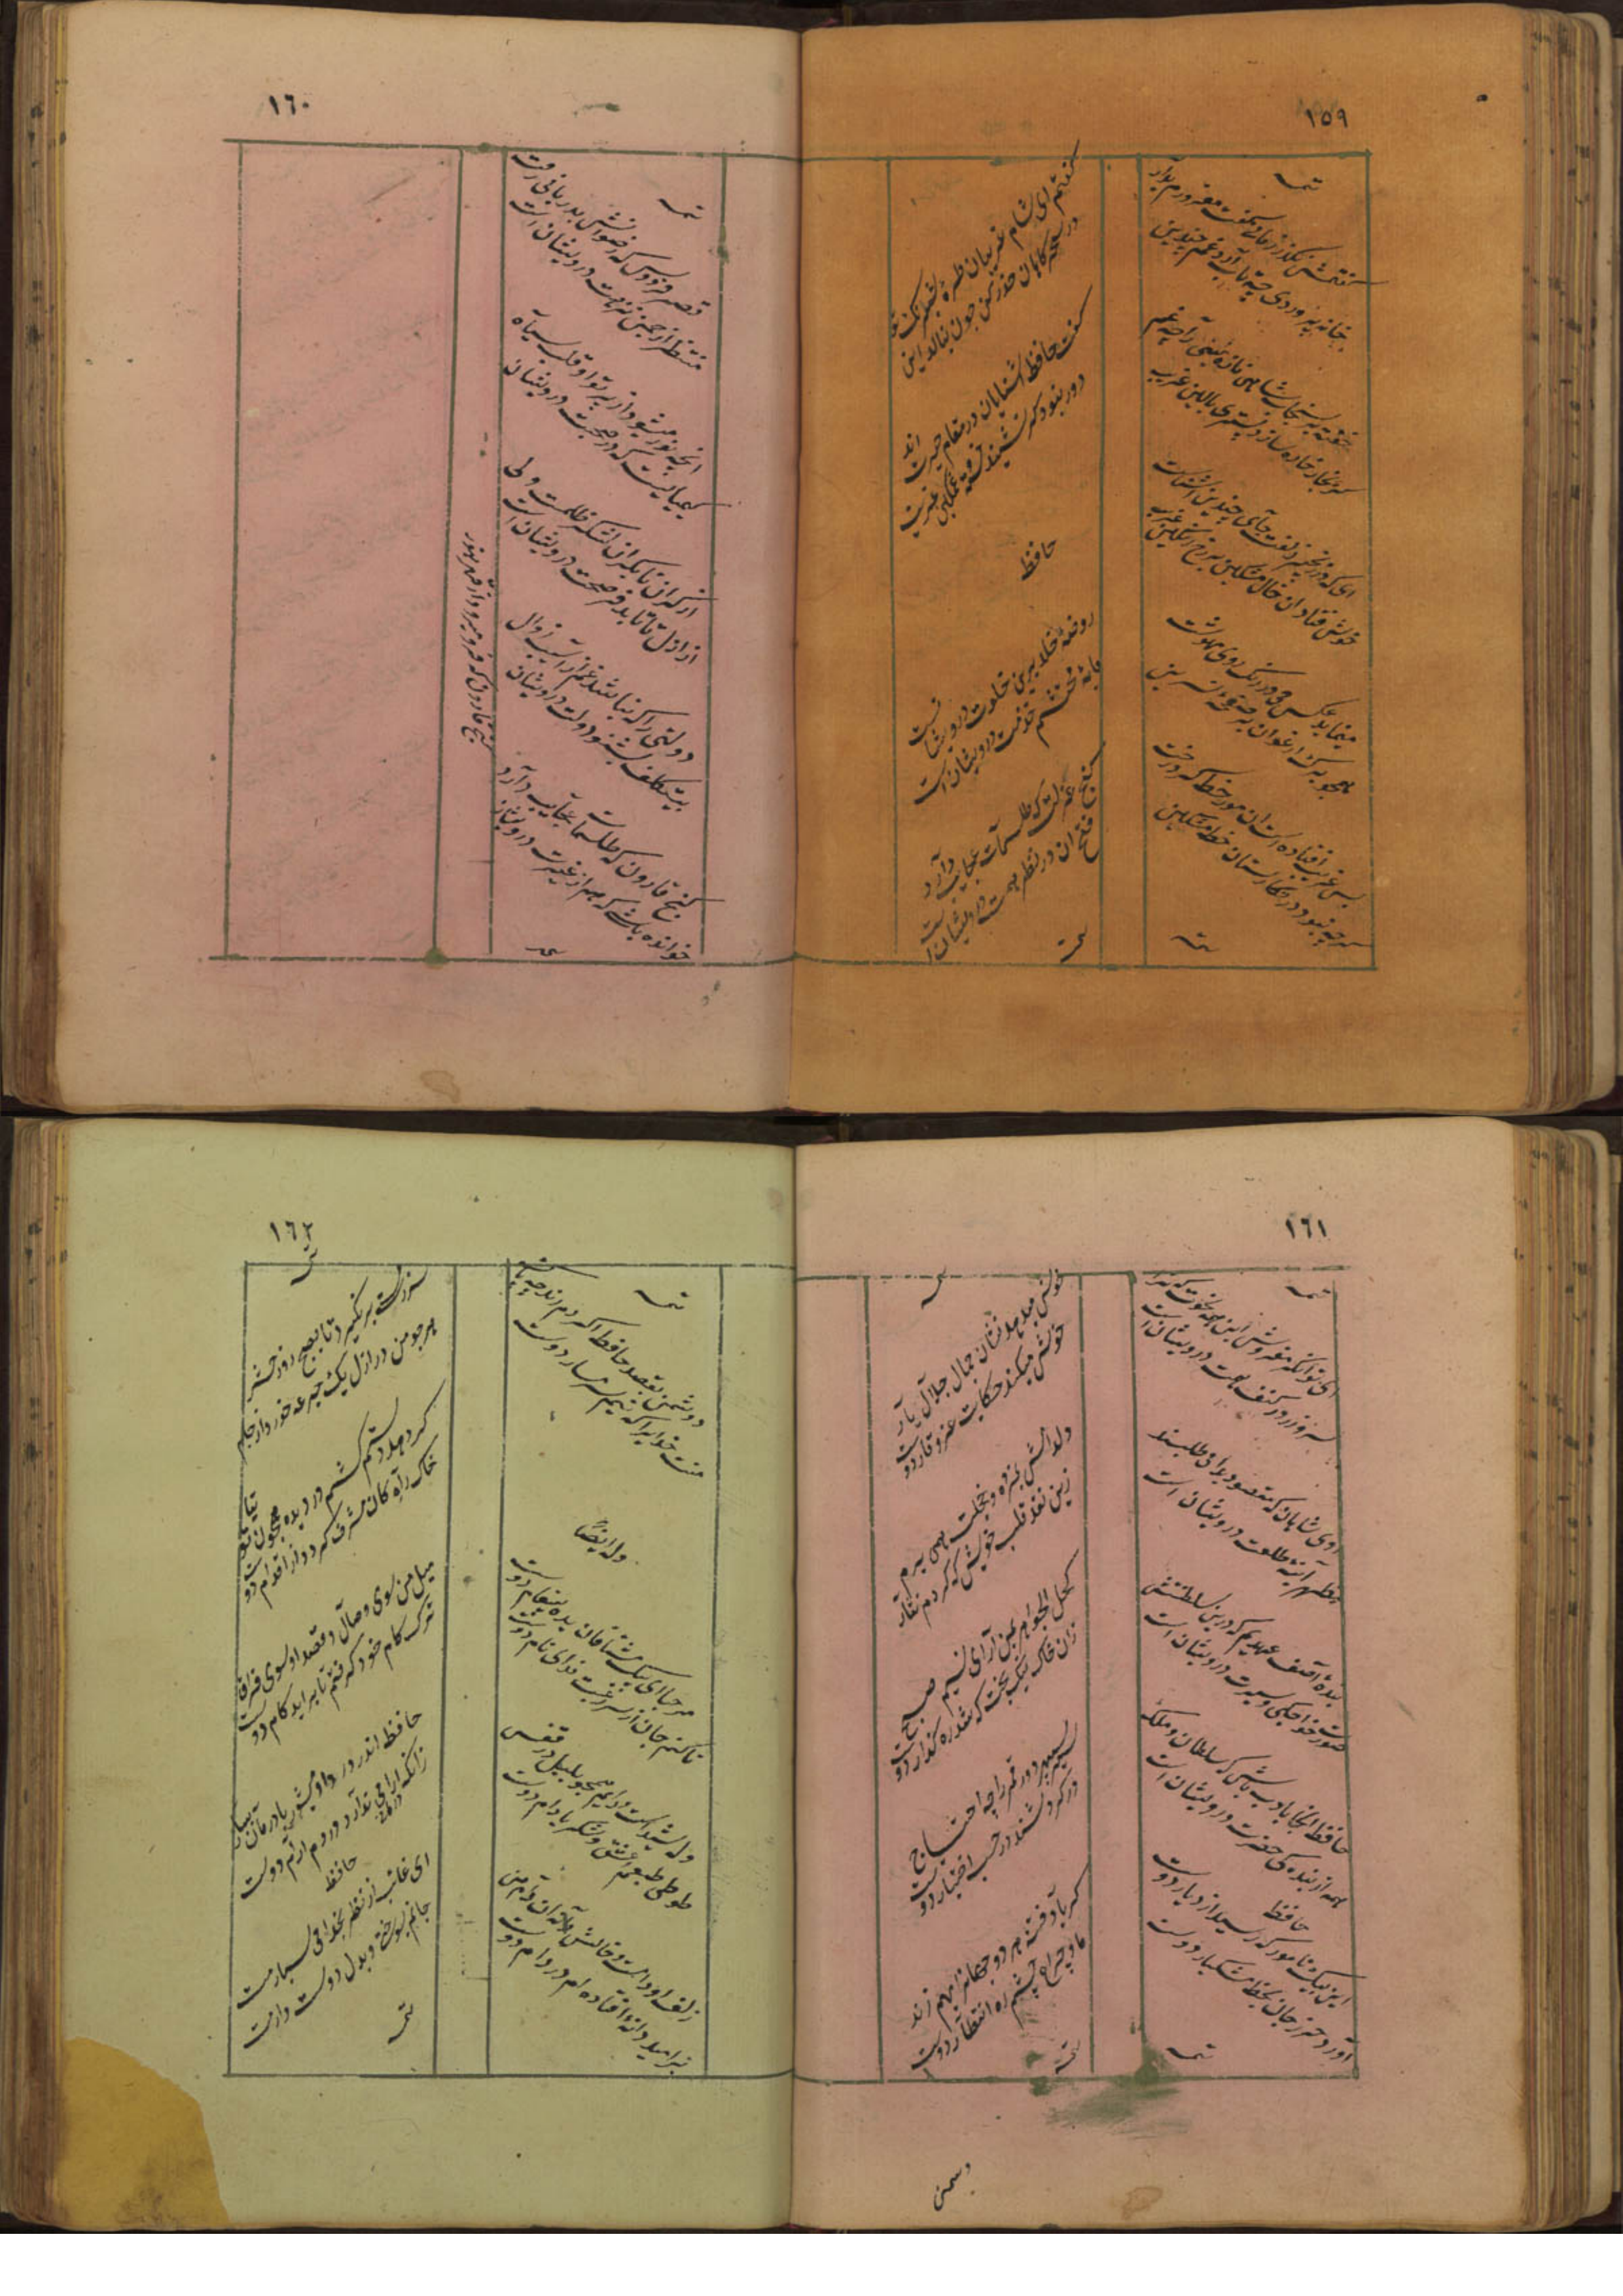 ١٥٩
تتمه
گفتمش مگذر زمانی گفت معذورم بدار
خانه پروردی چه تاب آرد غم چندین غریب
خفته بر سنجاب شاهی نازنینی را چه غم
گر ز خار و خاره سازد بستر و بالین غریب
ای که در زنجیر زلفت جای چندین آشناست
خوش فتاد آن خال مشکین بر رخ رنگین غریب
مینماید عکس می در رنگ روی مهوشت
همچو برگ ارغوان بر صفحه نسرین
بس غریب افتاده است آن مور خط گرد رخت
گرچه نبود در نگارستان خط مشکین
تتمه
گفتم ای شام غریبان طره شبرنگ تو
در سحرگاهان حذر کن چون بنالد این
گفت حافظ آشنایان در مقام حیرت اند
دور نبود گر نشیند خسته و غمگین غریب
حافظ
روضه خلد برین خلوت درویشانست
مایه محتشمی خدمت درویشان است
گنج عزلت که طلسمات عجایب دارد
فتح آن در نظر همت درویشان است
تتمه
١٦٠
تتمه
قصر فردوس که رضوانش بدربانی رفت
منظری از چمن نزهت درویشان است
انچه زر میشود از پرتو او قلب سیاه
کیمیاییست که در صحبت درویشان
از کران تا بکران لشکر ظلمست ولی
از ازل تا بابد فرصت درویشان است
دولتی را که نباشد غم از آسیب زوال
بی تکلف بشنو دولت درویشان
گنج قارون که طلسمات عجایب دارد
خوانده باشی که هم از غیرت درویشان
تتمه
گنج قارون که فرو میرود از قهر هنوز
١٦١
تتمه
ای توانگر مفروش این همه نخوت که ترا
سر و زر در کنف همت درویشان است
روی شاهان که مقصود بدعا می طلبند
مظهر آینه طلعت درویشان است
بنده آصف عهدیم که درین سلطنتش
صورت خواجگی و سیرت درویشان است
حافظ اینجا بادب باش که سلطان و ملک
همه از بندگی حضرت درویشان است
حافظ
این پیک نامور که رسید از دیار دوست
آورد حرز جان بخط مشکبار دوست
تتمه
تتمه
خوش میدهد نشان جمال و جلال یار
خوش میکند حکایت عز و وقار دوست
دل دادمش بمژده و خجلت همی برم
زین نقد قلب خویش که کردم نثار
کحل الجواهری بمن آر ای نسیم صبح
زان خاک نیکبخت که شد رهگذار دوست
سیر سپهر و دور قمر را چه احتیاج
در گردشند در حسب اختیار دوست
گر باد فتنه هر دو جهانرا بهم زند
ما و چراغ چشم و ره انتظار دوست
تتمه
دشمن
١٦٢
تتمه
دشمن بقصد حافظ اگر دم زند چه باک
منت خدایرا که نیم شرمسار دوست
وله ایضاً
مرحبا ای پیک مشتاقان بده پیغام دوست
تا کنم جان از سر رغبت فدای نام دوست
واله شیداست دایم همچو بلبل در قفس
طوطی طبعم ز عشق شکر و بادام دوست
زلف او دام است و خالش دانه آن دام و من
بر امید دانه افتاده ام در دام دوست
تتمه
سر ز مستی بر نگیرد تا بصبح روز حشر
هرچو من در ازل یک جرعه خورد از جام
گر دهد دستم کشم در دیده همچون توتیا
خاک راه کان مشرف گردد از اقدام دوست
میل من سوی وصال و قصد او سوی فراق
ترک کام خود گرفتم تا برآید کام دوست
حافظ اندر درد او میسوز و با درمان مساز
زانکه درمانی ندارد درد بی آرام دوست
حافظ
ای غائب از نظر بخدا می سپارمت
جانم بسوختی و بدل دوست دارمت
تتمه